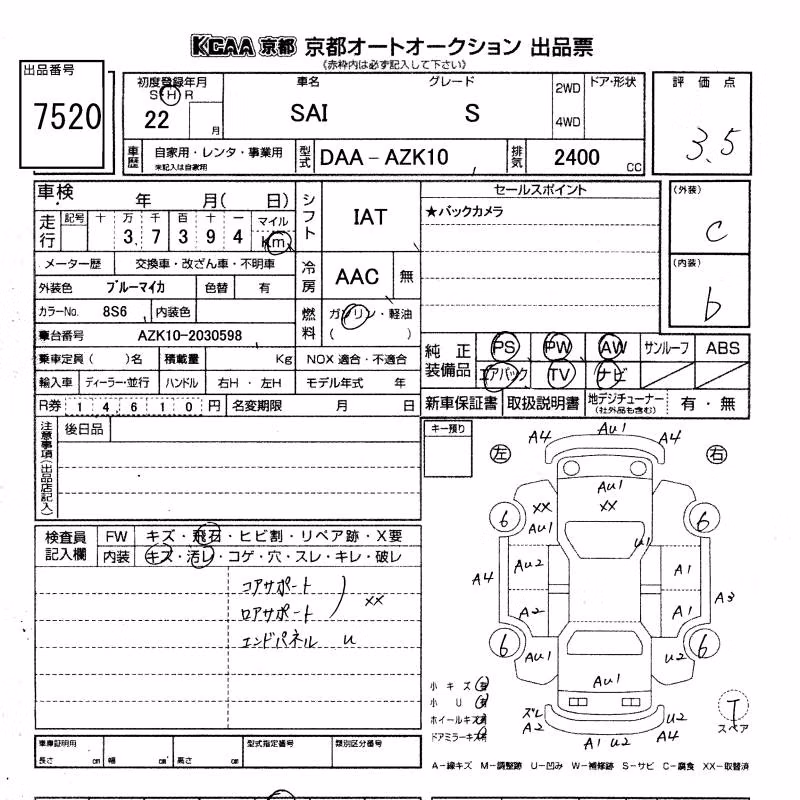 KCAA 京都 京都オートオークション 出品票
(赤枠内は必ず記入して下さい)
出品番号
7520
初度登録年月
S・H・R
22 月
車名
SAI
グレード
S
2WD
4WD
ドア・形状
評価点
3.5
車歴
自家用・レンタ・事業用
未記入は自家用
型式
DAA-AZK10
排気
2400 CC
車検 年 月( 日)
走行
記号 十 万 千 百 十 一 マイル
3 7 3 9 4 Km
メーター歴 交換車・改ざん車・不明車
外装色 ブルーマイカ 色替 有
カラーNo. 8S6 内装色
車台番号 AZK10-2030598
乗車定員( )名 積載量 Kg
輸入車 ディーラー・並行 ハンドル 右H・左H
R券 14610円 名変期限 月 日
シフト
IAT
冷房
AAC 無
燃料
ガソリン・軽油
( )
NOX 適合・不適合
モデル年式 年
セールスポイント
★バックカメラ
(外装)
C
(内装)
b
純正装備品
PS PW AW サンルーフ ABS
エアバック TV ナビ
新車保証書 取扱説明書 地デジチューナー
(社外品も含む)
有・無
注意事項(出品店記入)
後日品
キー預り
検査員記入欄
FW キズ・飛石・ヒビ割・リペア跡・X要
内装 キズ・汚レ・コゲ・穴・スレ・キレ・破レ
コアサポート
ロアサポート
XX
エンドパネル U
左
右
A4 AU1 A4
AU1
XX
XX
AU1
6
6
U1
AU2
A1
A4
A3
A2
A1
6
6
AU1
U2
AU1
ズレ
A2
A1 U2
U2
小キズ有
小U有
ホイールキズ有
ドアミラーキズ有
T
スペア
A-線キズ M-調整跡 U-凹み W-補修跡 S-サビ C-腐食 XX-取替済
車庫証明用
長さ cm 幅 cm 高さ cm
型式指定番号
類別区分番号